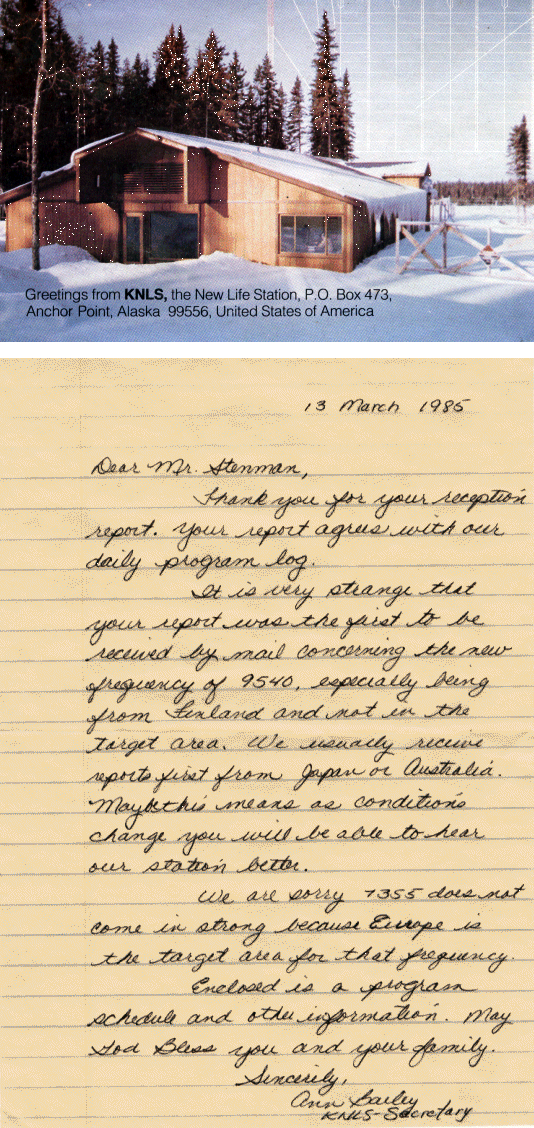 Greetings from KNLS, the New Life Station, P.O. Box 473,
Anchor Point, Alaska 99556, United States of America
13 March 1985
Dear Mr. Stenman,
Thank you for your reception
report. Your report agrees with our
daily program log.
It is very strange that
your report was the first to be
received by mail concerning the new
frequency of 9540, especially being
from Finland and not in the
target area. We usually receive
reports first from Japan or Australia.
Maybe this means as conditions
change you will be able to hear
our station better.
We are sorry 7355 does not
come in strong because Europe is
the target area for that frequency.
Enclosed is a program
schedule and other information. May
God Bless you and your family.
Sincerely,
Ann Bailey
KNLS-Secretary